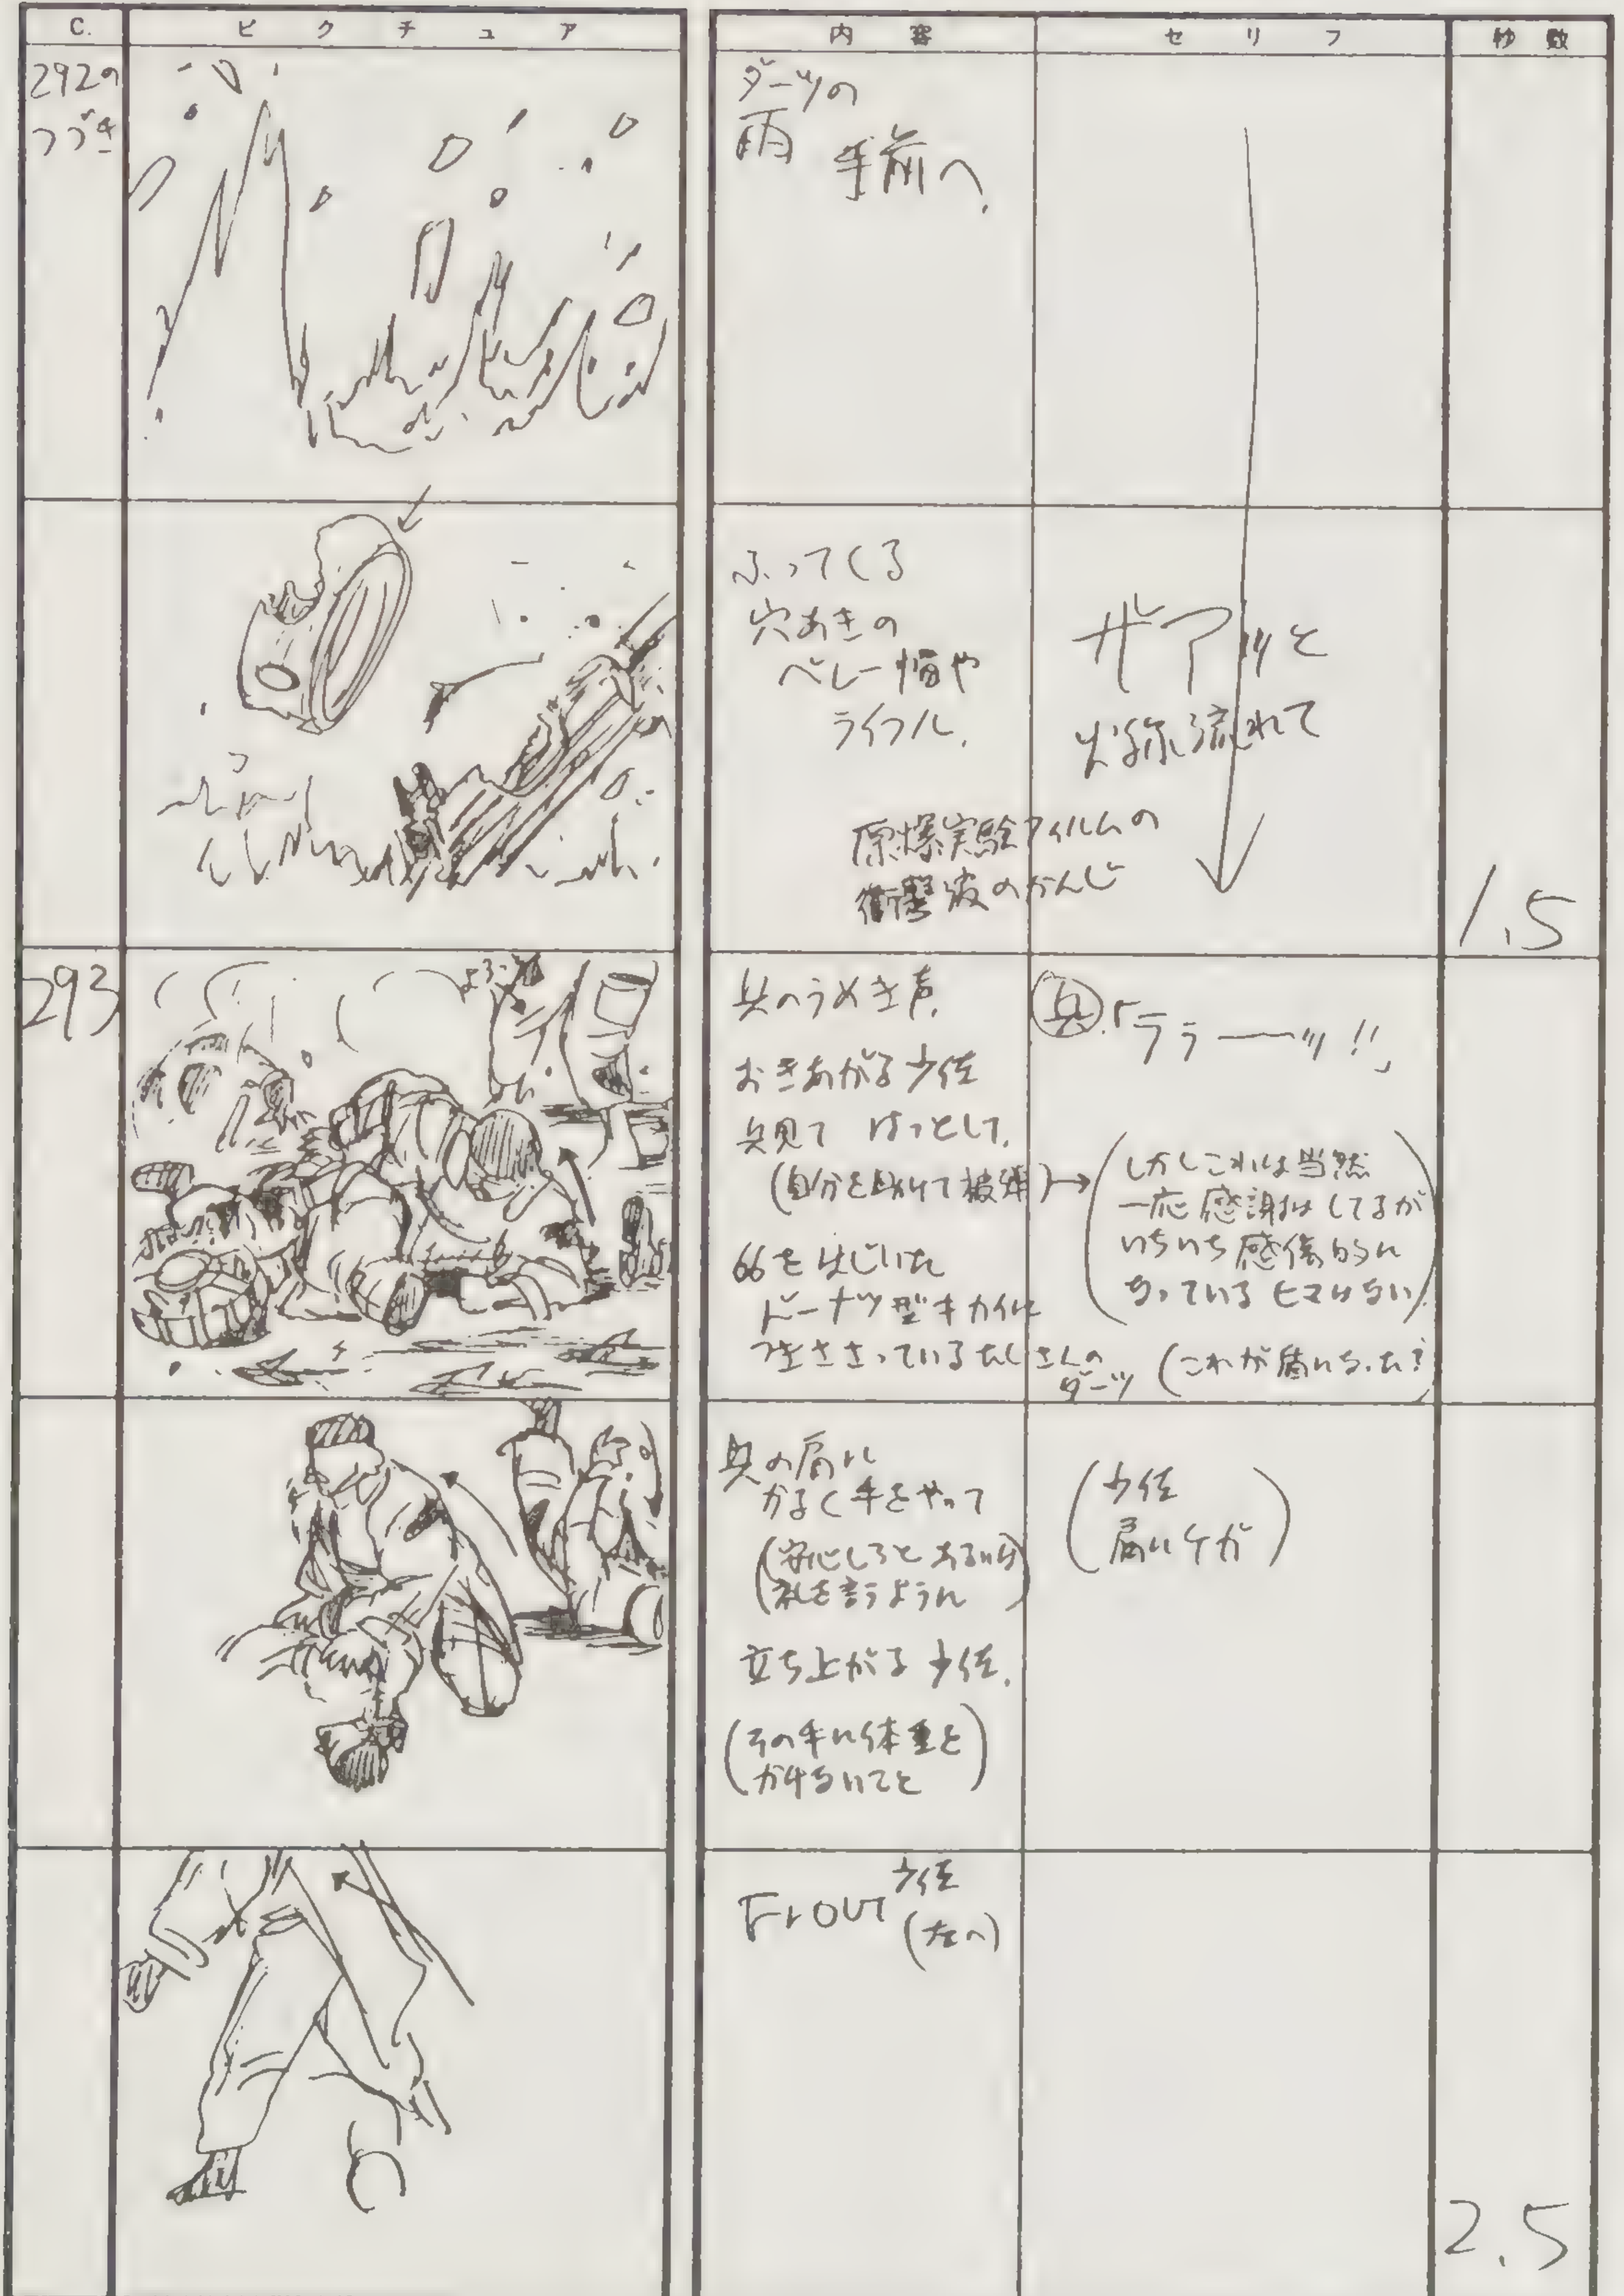 C.
ピクチュア
内容
セリフ
秒数
292の
つづき
ダーツの
雨 手前へ.
ふってくる
穴あきの
ベレー帽や
ライフル.
ザアッと
流れて
原爆実験フィルムの
衝撃波のかんじ
1.5
293
兵のうめき声.
おきあがる少佐
兵見て はっとして.
(自分を助けて被弾)→
66をはじいた
ドーナツ型キカイに
つきささっているたくさんの
ダーツ
兵.「ララーーッ!!」
(しかしこれは当然
一応感謝はしてるが
いちいち感傷的に
なっているヒマはない)
(これが盾になった?
兵の肩に
かるく手をやって
(安心しろと あるいは
礼を言うように)
立ち上がる少佐.
(その手に体重を
かけないこと)
(少佐
肩にケガ)
FrOUT 少佐
(左へ)
2.5